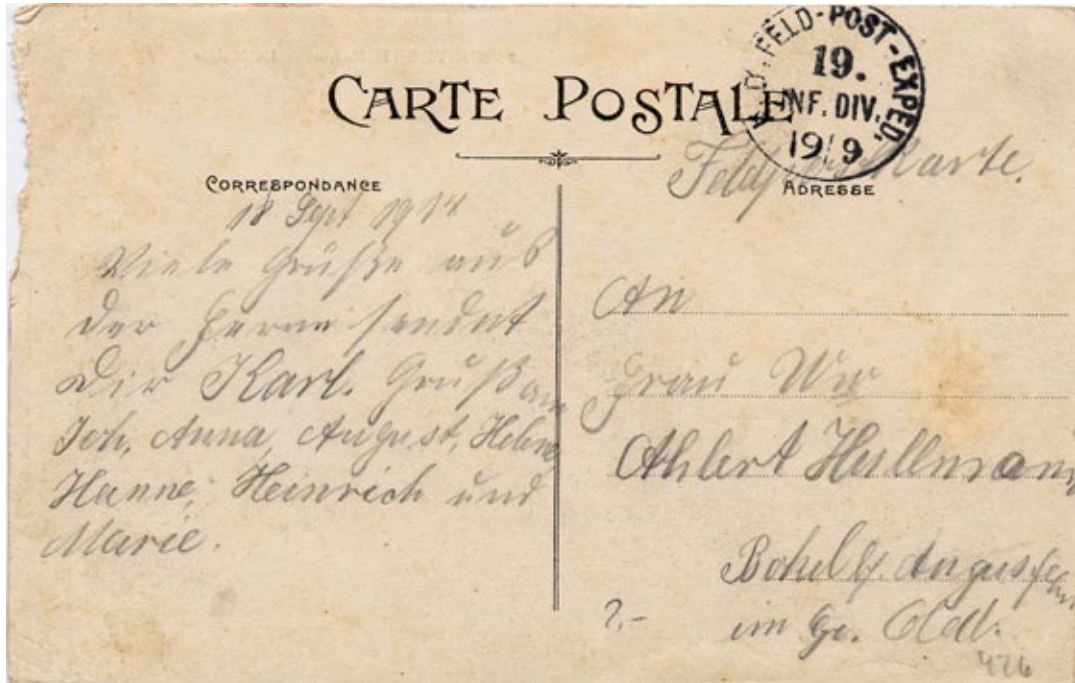 CARTE POSTALE
K.D. FELD-POST-EXPED.
19.
INF. DIV.
19/9
Feldpostkarte.
CORRESPONDANCE
ADRESSE
18 Sept 1914
Viele Grüße aus
der Ferne sendet
Dir Karl. Gruß an
Joh, Anna, August, Helene
Hanne, Heinrich und
Marie.
An
Frau Ww
Ahlert Hullmann
Bokel b/. Augustfehn
im Gr. Old.
2,-
426